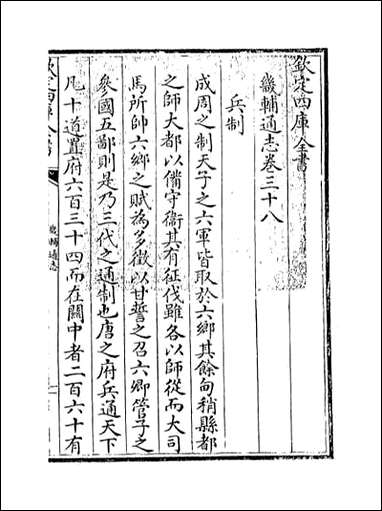 欽定四庫全書
畿輔通志卷三十八
兵制
成周之制天子之六軍皆取於六鄉其餘甸稍縣都
之師大都以備守衛其有征伐雖各以師從而大司
馬所帥六鄉之賦為多徵以甘誓之召六卿管子之
參國五鄙則是乃三代之通制也唐之府兵通天下
凡十道置府六百三十四而在關中者二百六十有
欽定四庫全書
畿輔通志